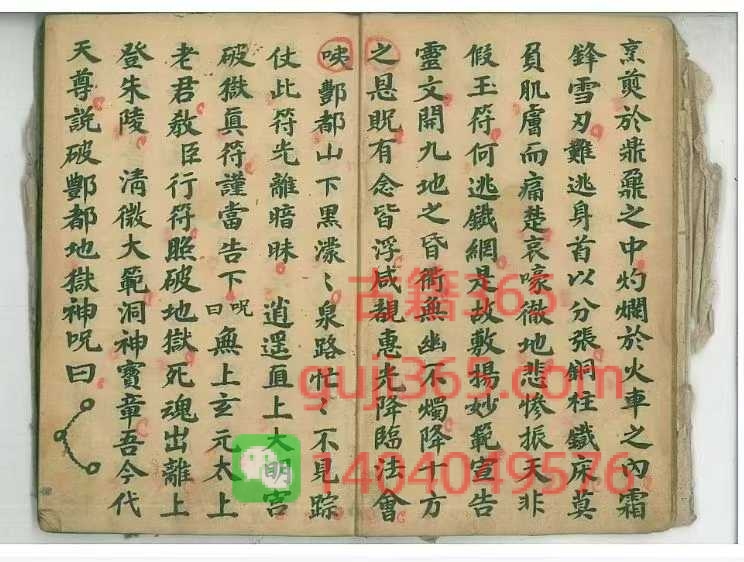 烹煎於鼎鼐之中灼爛於火車之內霜
鋒雪刃難逃身首以分張銅柱鐵床莫
貟肌膚而痛楚哀嚎徹地悲慘振天非
假玉符何逃鐵網是故敷揚妙範宣告
靈文開九地之昏衢無幽不燭降十方
之恩貺有念皆浮咸覩惠光降臨法會
酆都山下黑濛〻泉路忙〻不見踪
仗此符光離暗昧 逍遥直上大明宫
破獄真符謹當告下 呪曰 無上玄元太上
老君敎臣行符照破地獄死魂出離上
登朱陵 清微大範洞神寳章吾今代
天尊說破酆都地獄神呪曰
古籍365
guj365.com
1404049576